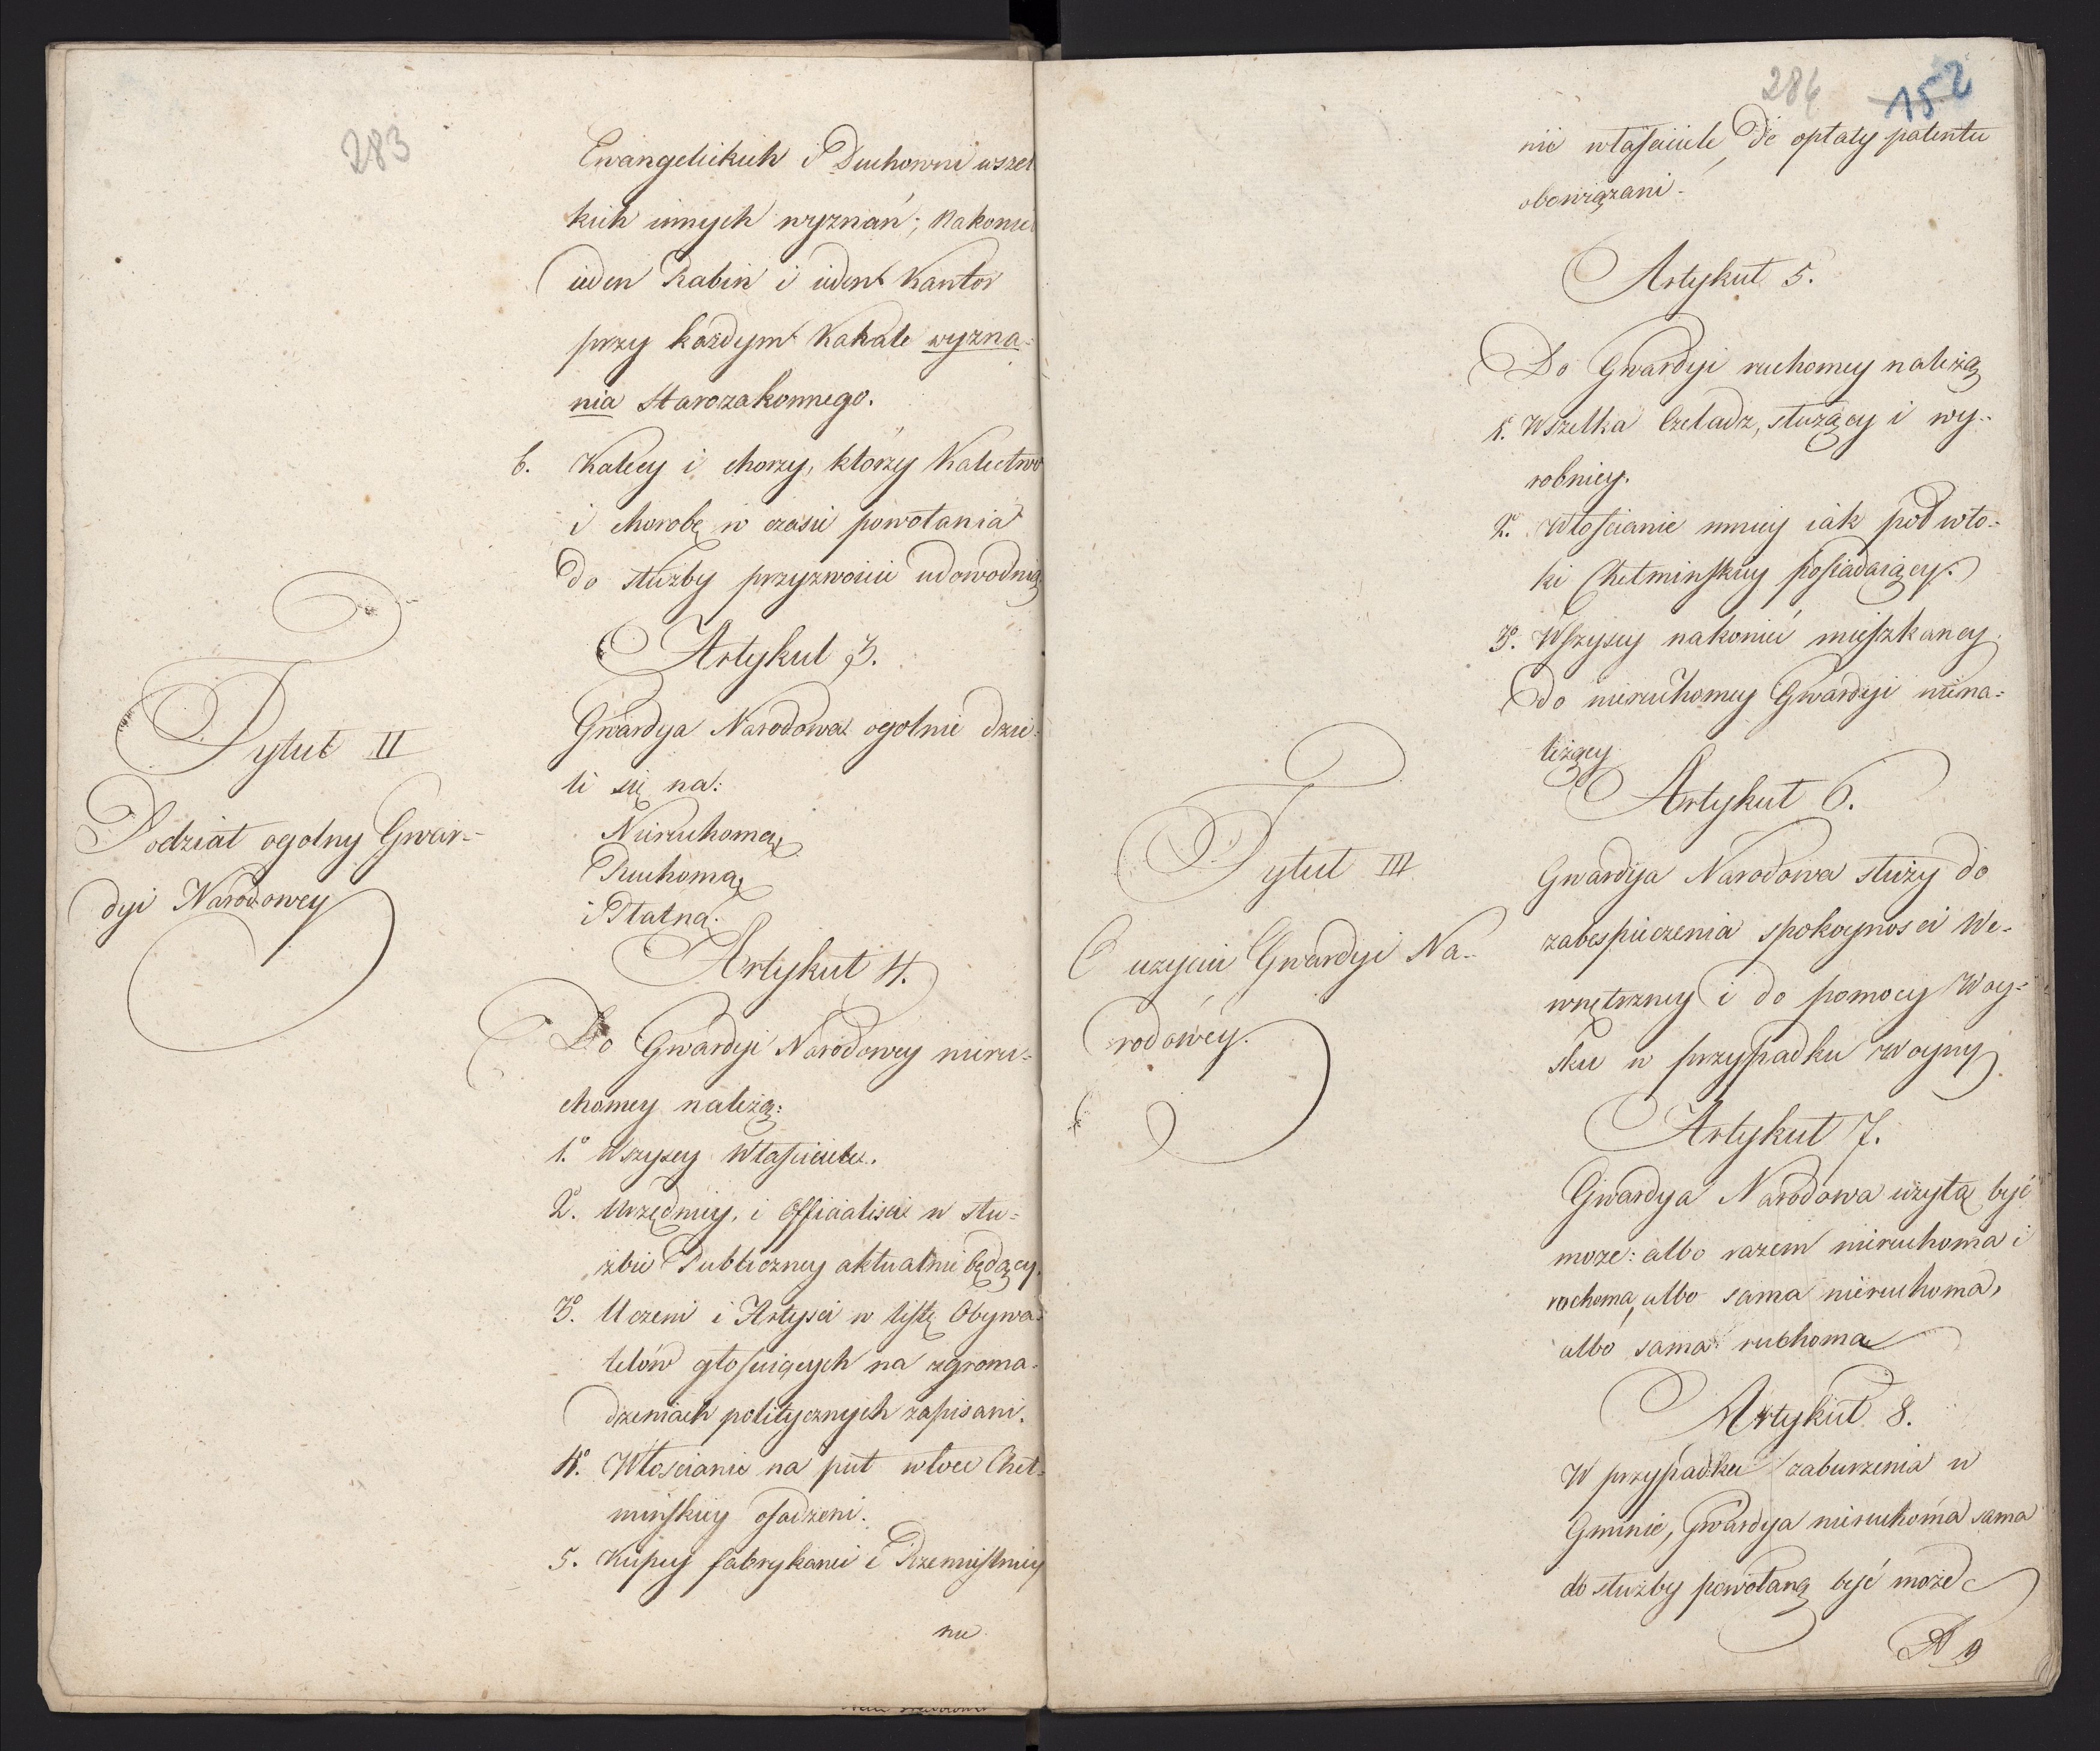 283
Ewangelickich i Duchowni wszel
kich innych wyznań; nakoniec
ieden Rabin i ieden Kantor
przy każdym Kahale wyzna-
nia Starozakonnego.
6. Kalecy i chorzy, ktorzy Kalectwo
i chorobę w czasie powołania
do służby przyzwoicie udowodnią
Artykuł 3.
Tytuł II
Podział ogolny Gwar-
dyi Narodowey
Gwardya Narodowa ogolnie dzie-
li się na:
Nieruchomą
Ruchomą
i Płatną.
Artykuł 4.
Do Gwardyi Narodowey nieru-
chomey należą:
1o. Wszyscy Właściciele.
2o. Urzędnicy, i Officialisci w słu-
żbie Publiczney aktualnie będący.
3o. Uczeni i Artysci w listę Obywa-
telów głosuiących na zgroma-
dzeniach politycznych zapisani.
4o. Włoscianie na puł włoce Cheł-
minskiey osadzeni.
5. Kupcy fabrykanci i Rzemieslnicy
nie
284
152
nie właściciele, do opłaty patentu
obowiązani.
Artykuł 5.
Do Gwardyi ruchomey należą
1. Wszelka Czeladz, służący i wy-
robnicy.
2o. Włościanie mniey iak pół wło-
ki Chełminskiey posiadaiący.
3o. Wszyscy nakoniec mieszkancy
do nieruchomey Gwardyi niena-
leżący
Artykuł 6.
Tytuł III
O uzyciu Gwardyi Na-
rodowéy.
Gwardya Narodowa służy do
zabespieczenia spokoynosci We-
wnętrzney i do pomocy Woy-
sku w przypadku woyny
Artykuł 7.
Gwardya Narodowa użytą być
moze: albo razem nieruchoma i
ruchoma, albo sama nieruchoma,
albo sama ruchoma
Artykuł 8.
W przypadku zaburzenia w
Gminie, Gwardya nieruchoma sama
do służby powołaną być może
A 9